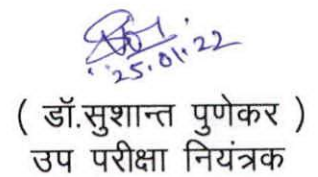 25.01.22
( डॉ.सुशान्त पुणेकर )
उप परीक्षा नियंत्रक